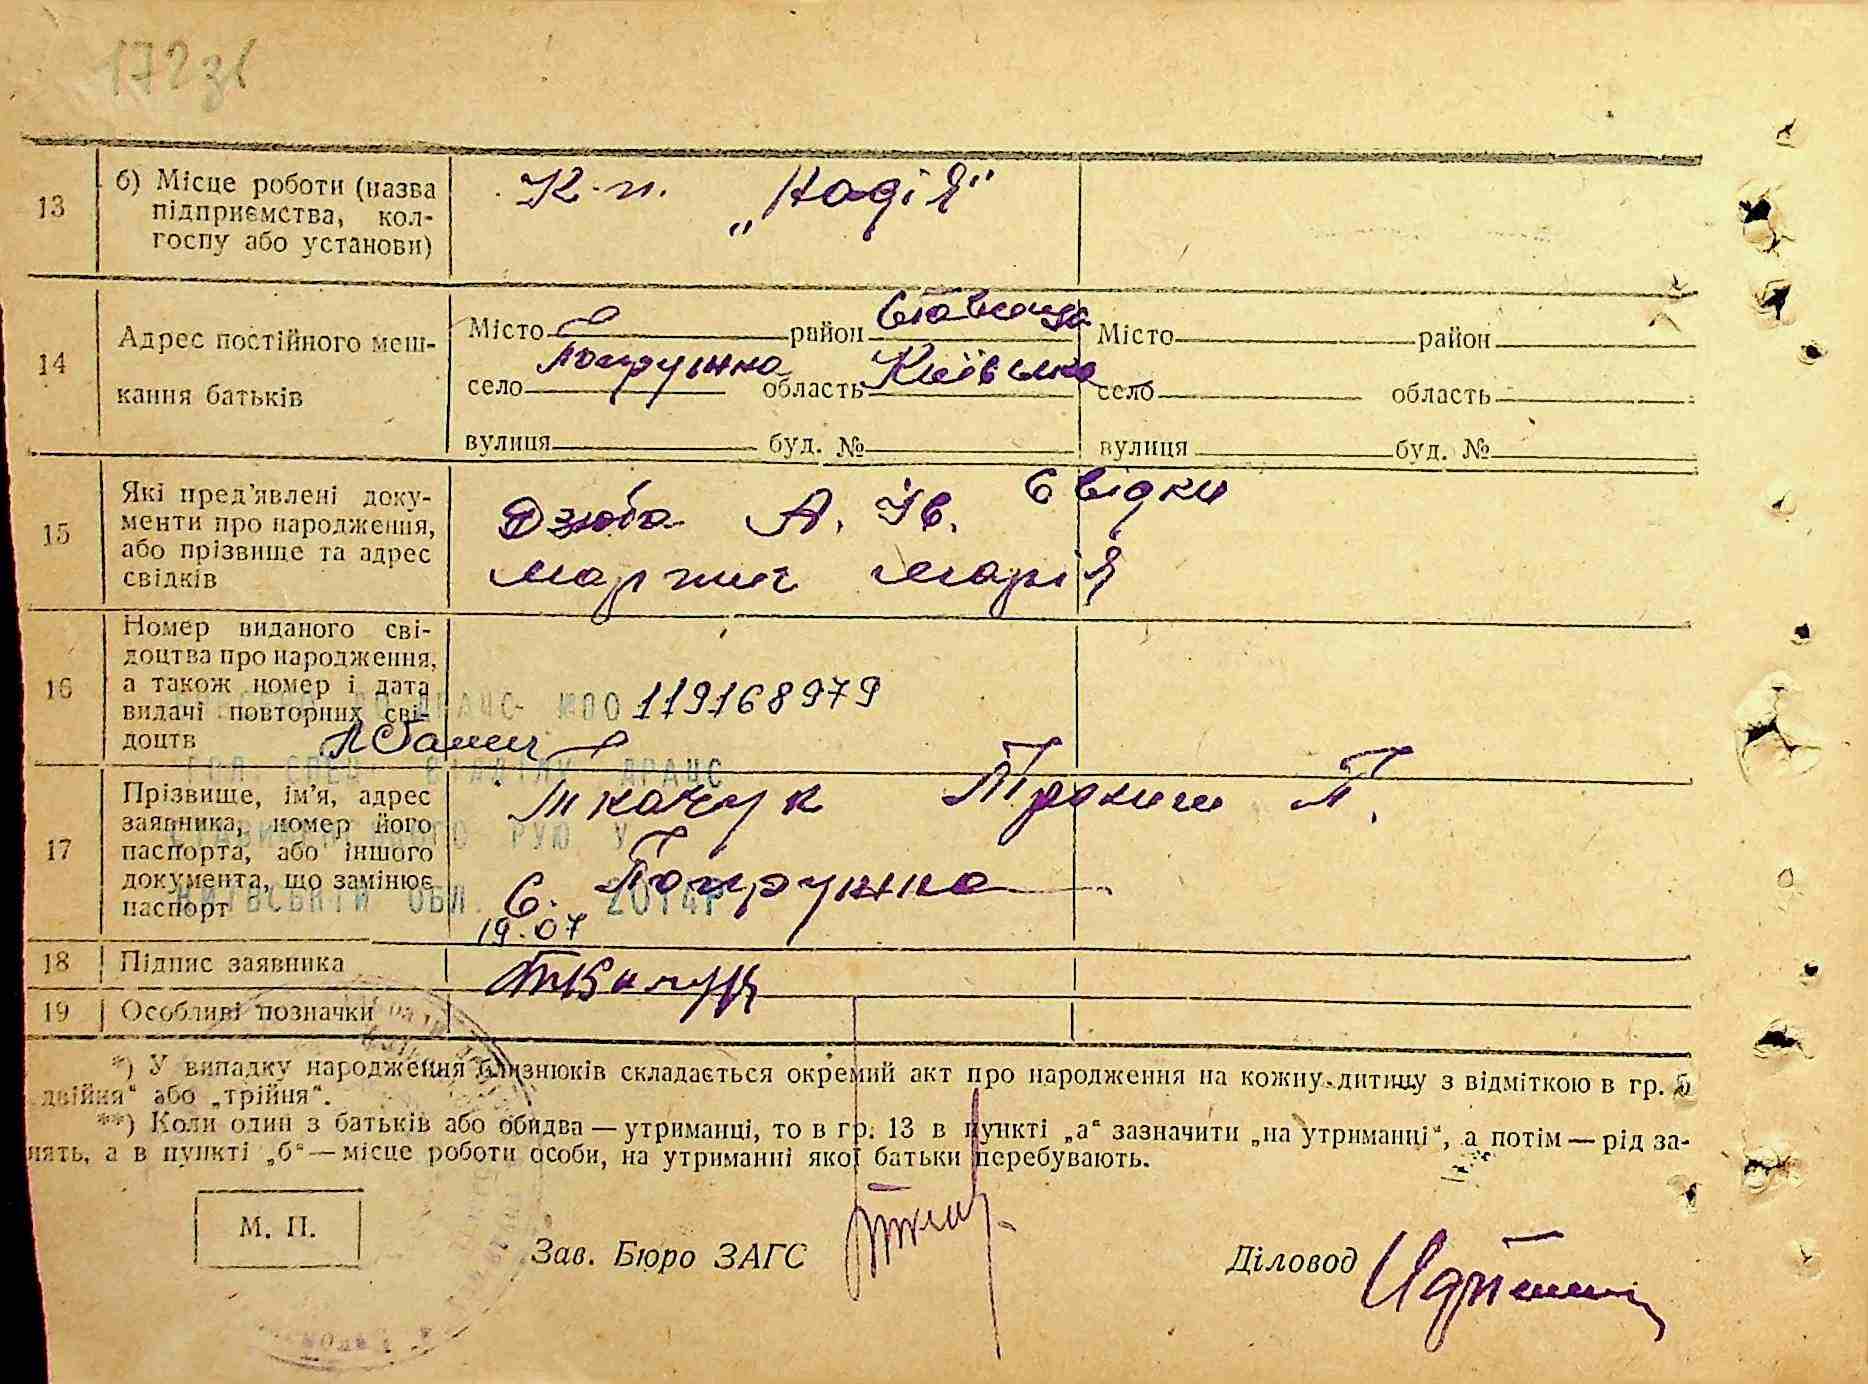 172зв
13
б) Місце роботи (назва
підприємства, кол-
госпу або установи)
К-п. „Надія"
14
Адрес постійного меш-
кання батьків
Місто район Ставище
село Попружна область Київська
вулиця буд. №
Місто район
село область
вулиця буд. №
15
Які пред'явлені доку-
менти про народження,
або прізвище та адрес
свідків
Свідки
Дзюба А. Ів.
Марія
16
Номер виданого сві-
доцтва про народження,
а також номер і дата
видачі повторних сві-
доцтв
ДРАЦС №00119168979
ДРАЦС
17
Прізвище, ім'я, адрес
заявника, номер його
паспорта, або іншого
документа, що замінює
паспорт
Ткачук П.
РУЮ У
с. Попружна
ОБЛ. 2014Р
19.07
18
Підпис заявника
Ткачук
19
Особливі позначки
*) У випадку народження близнюків складається окремий акт про народження на кожну дитину з відміткою в гр. 5
„двійня" або „трійня".
**) Коли один з батьків або обидва — утриманці, то в гр. 13 в пункті „а" зазначити „на утриманці", а потім — рід за-
нять, а в пункті „б" — місце роботи особи, на утриманні якої батьки перебувають.
М. П.
Зав. Бюро ЗАГС
Діловод